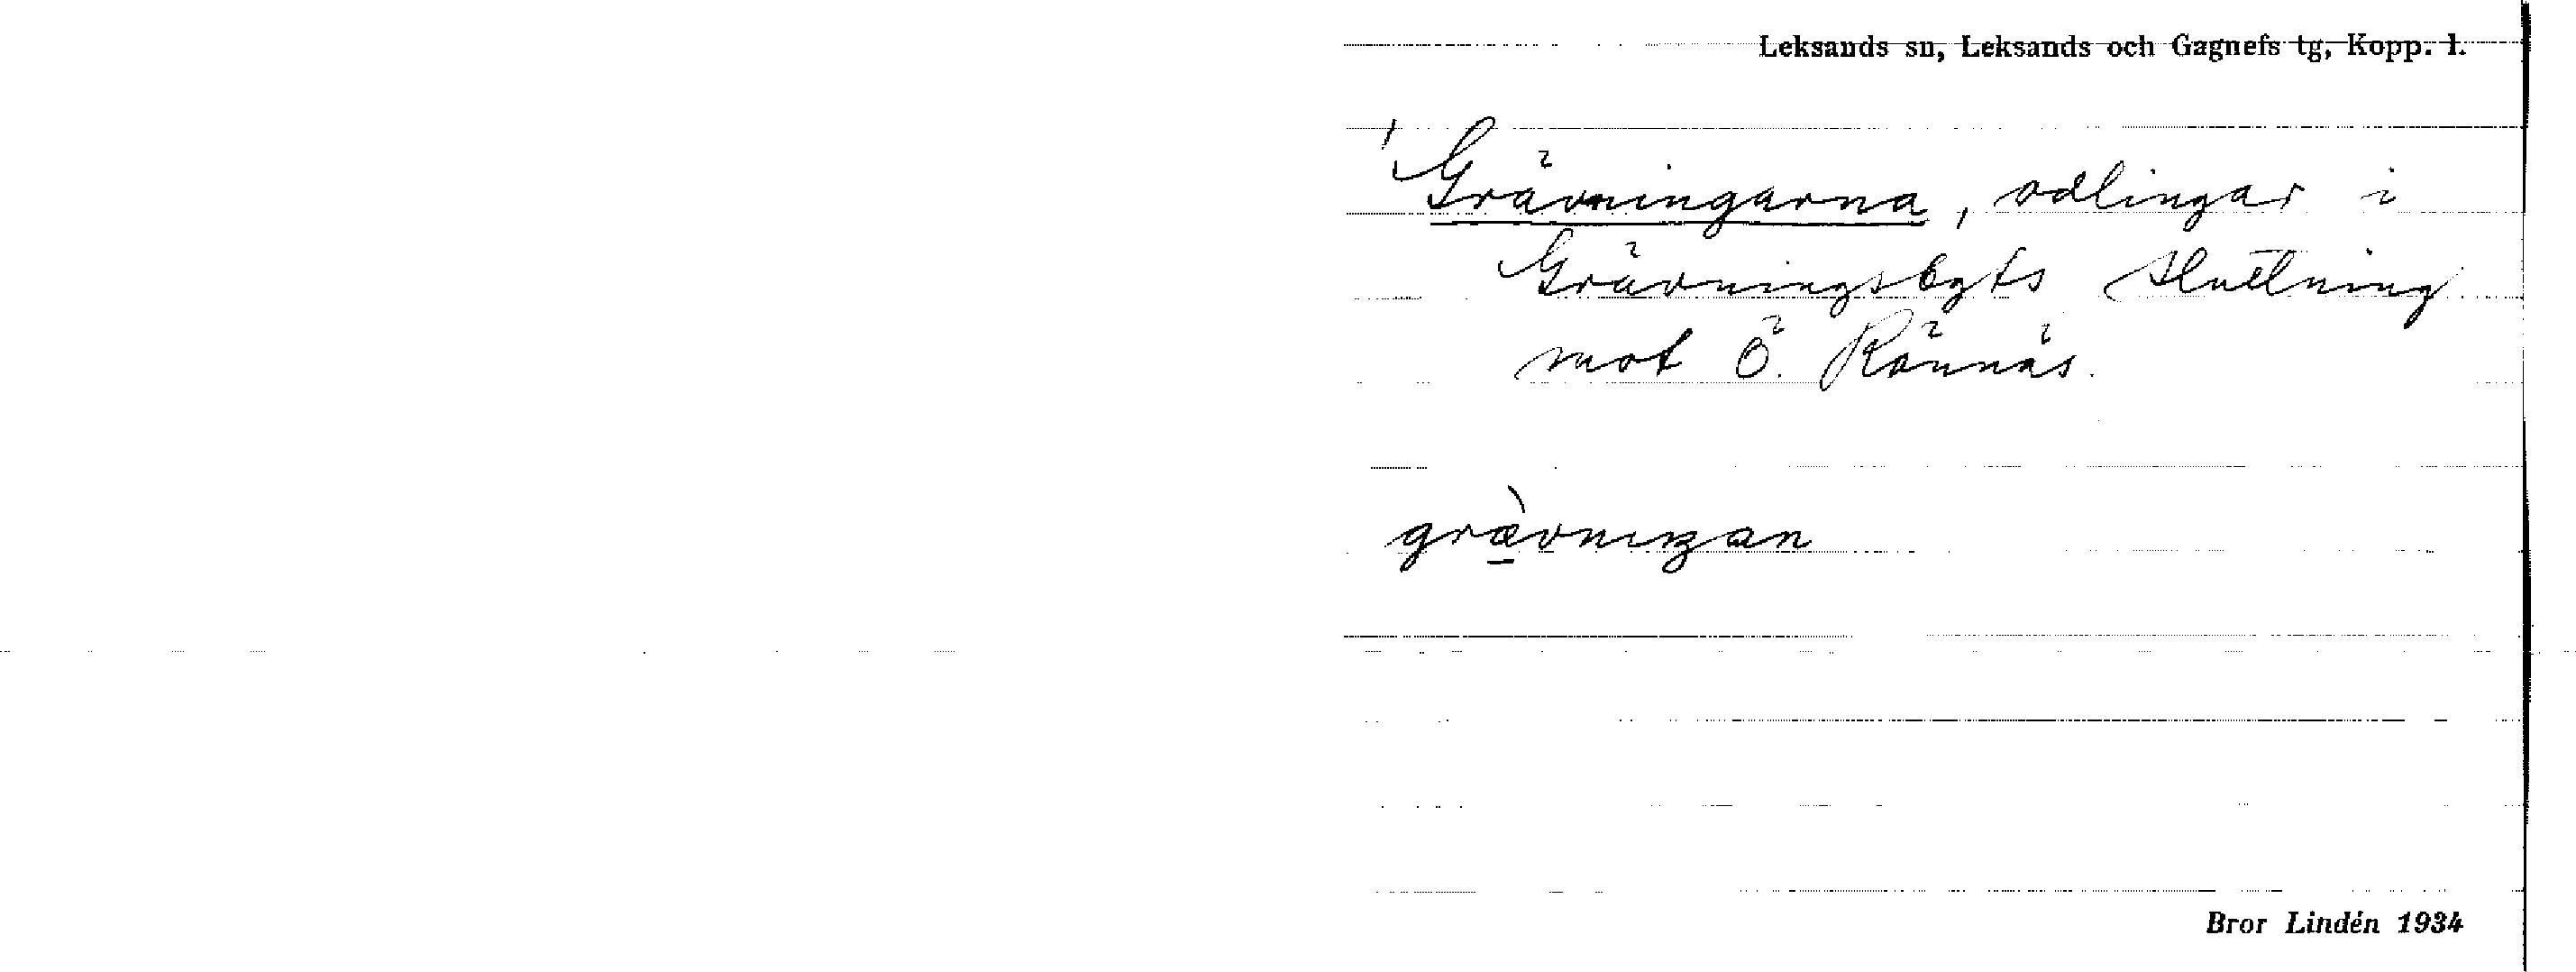 Leksands sn, Leksands och Gagnefs tg, Kopp. l.
Grävningarna, odlingar i
Grävningsbgts sluttning
mot Ö. Rönnäs.
grævniŋan
Bror Lindén 1934